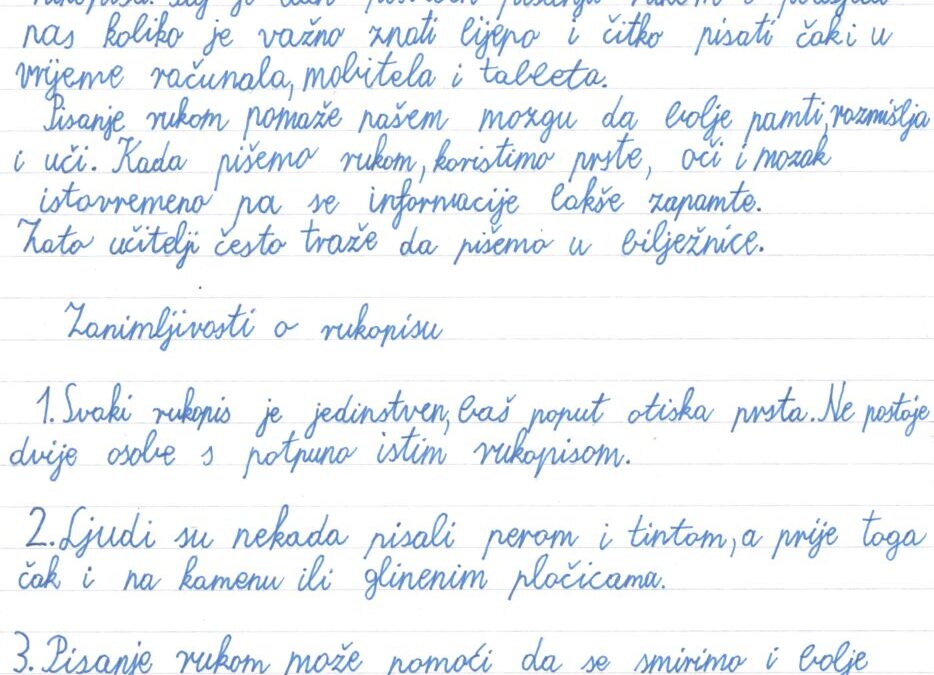 nas koliko je važno znati lijepo i čitko pisati čak i u
vrijeme računala, mobitela i tableta.
Pisanje rukom pomaže našem mozgu da bolje pamti, razmišlja
i uči. Kada pišemo rukom, koristimo prste, oči i mozak
istovremeno pa se informacije lakše zapamte.
Zato učitelji često traže da pišemo u bilježnice.
Zanimljivosti o rukopisu
1. Svaki rukopis je jedinstven, baš poput otiska prsta. Ne postoje
dvije osobe s potpuno istim rukopisom.
2. Ljudi su nekada pisali perom i tintom, a prije toga
čak i na kamenu ili glinenim pločicama.
3. Pisanje rukom može pomoći da se smirimo i bolje